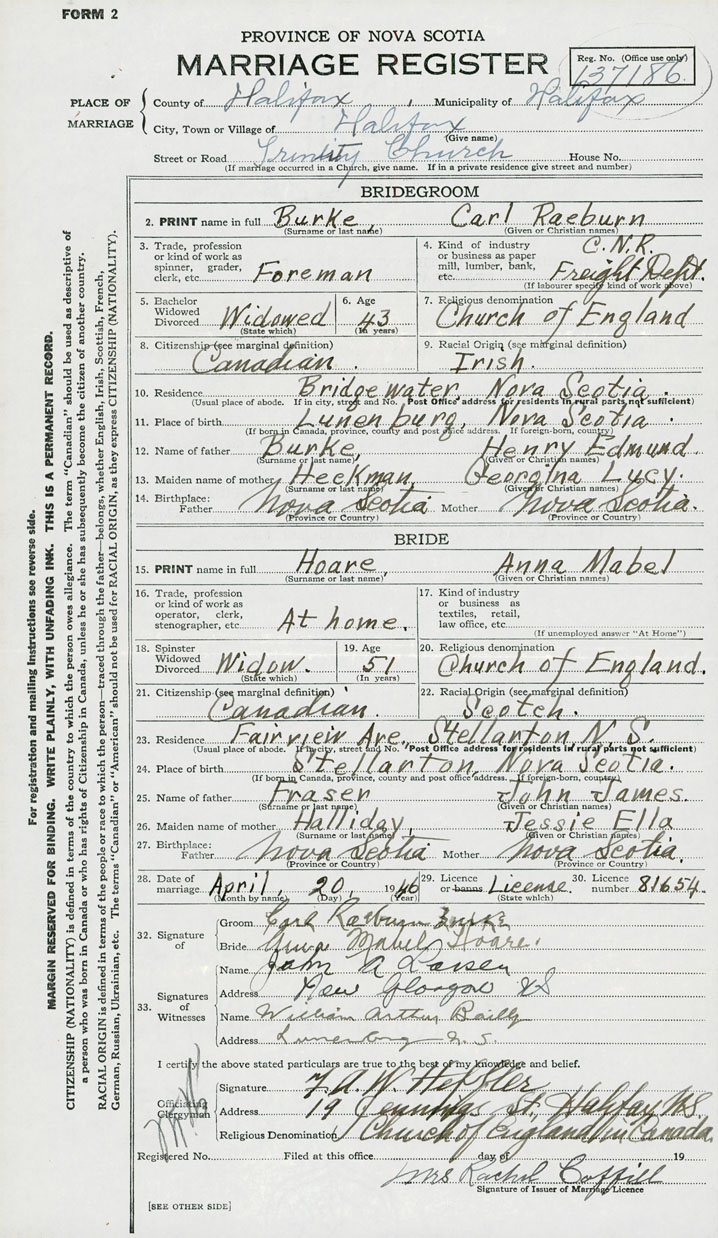 FORM 2
PROVINCE OF NOVA SCOTIA
MARRIAGE REGISTER
Reg. No. (Office use only)
137186
PLACE OF MARRIAGE
County of Halifax, Municipality of Halifax
City, Town or Village of Halifax
(Give name)
Street or Road Trinity Church House No.
(If marriage occurred in a Church, give name. If in a private residence give street and number)
BRIDEGROOM
2. PRINT name in full Burke, Carl Raeburn
(Surname or last name) (Given or Christian names)
3. Trade, profession or kind of work as spinner, grader, clerk, etc. Foreman
4. Kind of industry or business as paper mill, lumber, bank, etc. C.N.R. Freight Dept.
(If labourer specify kind of work above)
5. Bachelor Widowed Divorced Widowed
(State which)
6. Age 43
(In years)
7. Religious denomination
Church of England
8. Citizenship (see marginal definition)
Canadian
9. Racial Origin (see marginal definition)
Irish.
10. Residence Bridgewater, Nova Scotia.
(Usual place of abode. If in city, street and No. Post Office address for residents in rural parts not sufficient)
11. Place of birth Lunenburg, Nova Scotia.
(If born in Canada, province, county and post office address. If foreign-born, country)
12. Name of father Burke, Henry Edmund.
(Surname or last name) (Given or Christian names)
13. Maiden name of mother Heckman, Georgina Lucy.
(Surname or last name) (Given or Christian names)
14. Birthplace: Father Nova Scotia Mother Nova Scotia.
(Province or Country) (Province or Country)
BRIDE
15. PRINT name in full Hoare, Anna Mabel
(Surname or last name) (Given or Christian names)
16. Trade, profession or kind of work as operator, clerk, stenographer, etc. At home.
17. Kind of industry or business as textiles, retail, law office, etc.
(If unemployed answer "At Home")
18. Spinster Widowed Divorced Widow.
(State which)
19. Age 51
(In years)
20. Religious denomination
Church of England.
21. Citizenship (see marginal definition)
Canadian.
22. Racial Origin (see marginal definition)
Scotch.
23. Residence Fairview Ave, Stellarton, N.S.
(Usual place of abode. If in city, street and No. Post Office address for residents in rural parts not sufficient)
24. Place of birth Stellarton, Nova Scotia.
(If born in Canada, province, county and post office address. If foreign-born, country)
25. Name of father Fraser John James.
(Surname or last name) (Given or Christian names)
26. Maiden name of mother Halliday, Jessie Ella
(Surname or last name) (Given or Christian names)
27. Birthplace: Father Nova Scotia Mother Nova Scotia.
(Province or Country) (Province or Country)
28. Date of marriage April, 20, 1946
(Month by name) (Day) (Year)
29. Licence or banns License.
(State which)
30. Licence number 81654.
32. Signature of
Groom Carl Raeburn Burke
Bride Anna Mabel Hoare.
33. Signatures of Witnesses
Name John A Larsen
Address New Glasgow NS
Name William Arthur Bailly
Address Lunenburg N.S.
I certify the above stated particulars are true to the best of my knowledge and belief.
Officiating Clergyman
Signature
Address 19 Jennings St, Halifax N.S.
Religious Denomination Church of England in Canada
Registered No. Filed at this office day of 19
Mrs Rachel Coffill
Signature of Issuer of Marriage Licence
[SEE OTHER SIDE]
For registration and mailing instructions see reverse side.
MARGIN RESERVED FOR BINDING. WRITE PLAINLY, WITH UNFADING INK. THIS IS A PERMANENT RECORD.
CITIZENSHIP (NATIONALITY) is defined in terms of the country to which the person owes allegiance. The term "Canadian" should be used as descriptive of
a person who was born in Canada or who has rights of Citizenship in Canada, unless he or she has subsequently become the citizen of another country.
RACIAL ORIGIN is defined in terms of the people or race to which the person—traced through the father—belongs, whether English, Irish, Scottish, French,
German, Russian, Ukrainian, etc. The terms "Canadian" or "American" should not be used for RACIAL ORIGIN, as they express CITIZENSHIP (NATIONALITY).